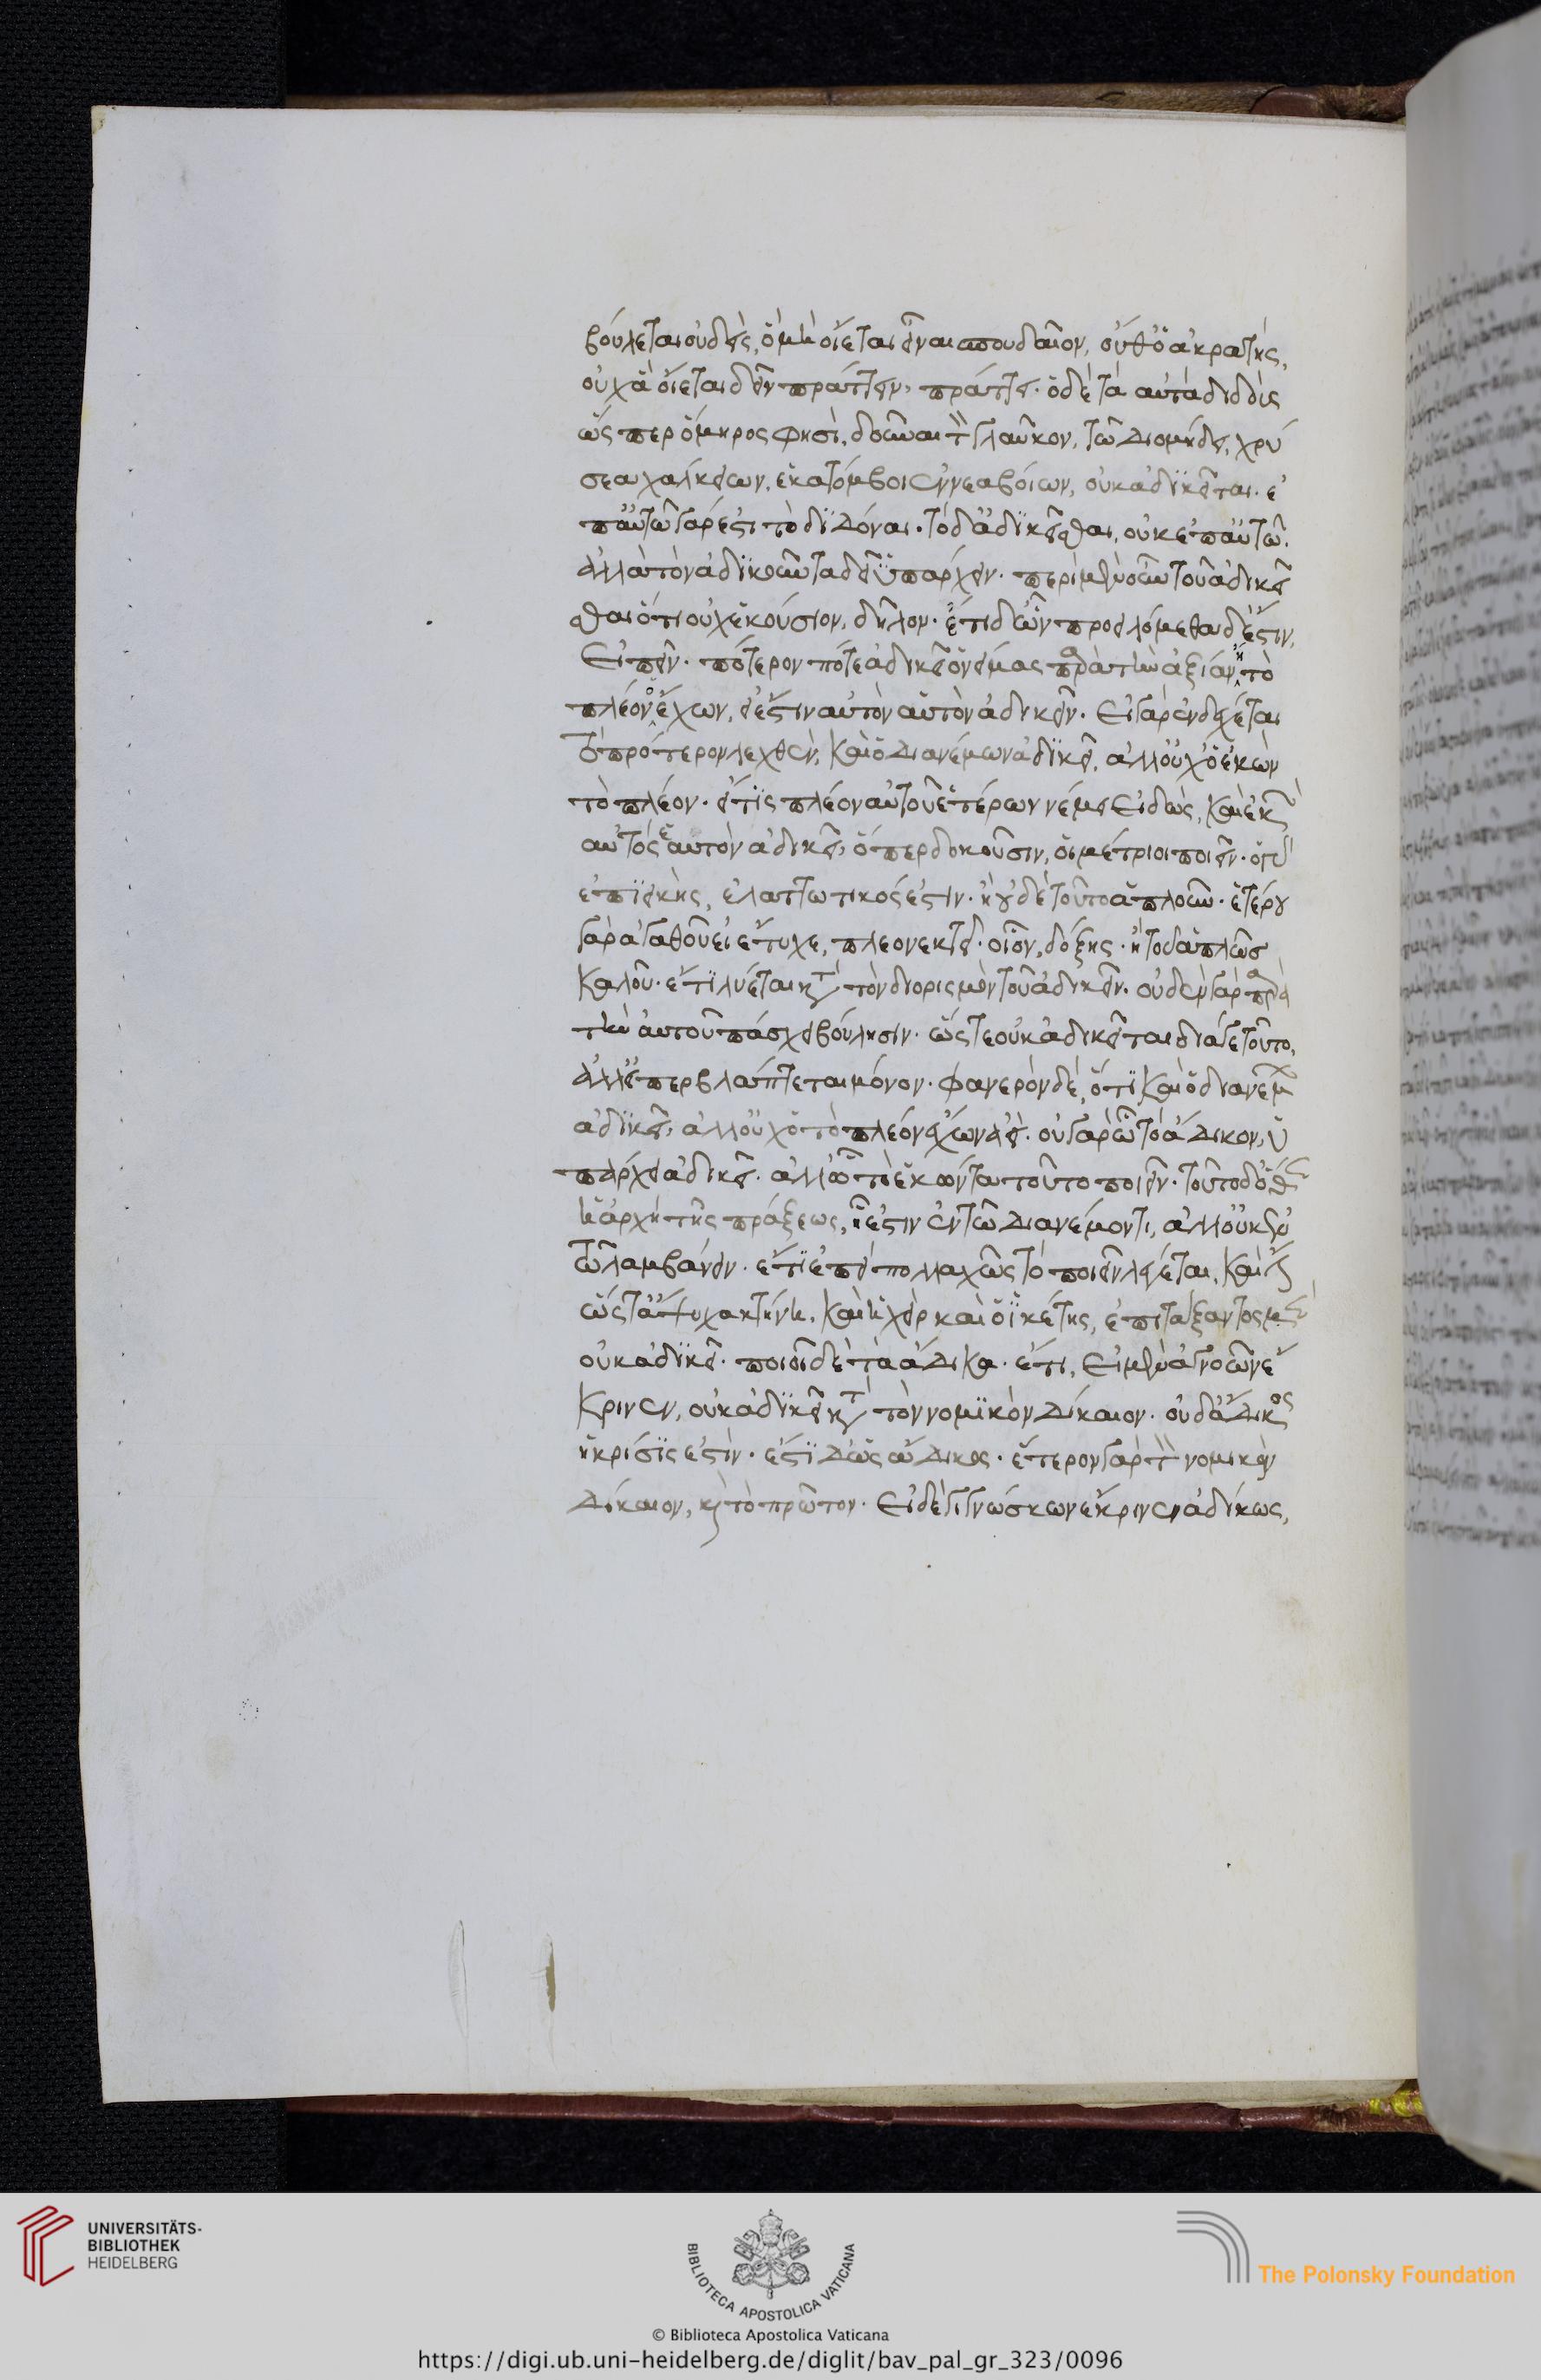 βούλεται οὐδεὶς, ὃ μὴ οἴεται εἶναι σπουδαῖον, οὔθ' ὁ ἀκρατὴς,
οὐχ ἃ οἴεται δεῖν πράττειν, πράττει. ὁ δὲ τὰ αὑτὰ διδοὺς
ὥς περ ὅμηρος φησὶ, δοῦναι τὸν γλαῦκον, τῶ διομήδει, χρύ
σεα χαλκείων, ἑκατόμβοι ἐννεαβόιων, οὐκ ἀδικεῖται. ἐ
π' αὐτῶ γάρ ἐστι τὸ διδόναι. τὸ δ' ἀδικεῖσθαι, οὐκ ἐπ' αὐτῶ.
ἀλλὰ τὸν ἀδικοῦντα δεῖ ὑπάρχειν. περὶ μὲν οὖν τοῦ ἀδικεῖ
σθαι ὅτι οὐχ ἑκούσιον, δῆλον. ἔτι δ' ὧν προειλόμεθα δύ' ἔστιν,
εἰπεῖν. πότερον ποτὲ ἀδικεῖ ὁ νείμας παρὰ τὴν ἀξίαν, ἢ τὸ
πλέον ὁ ἔχων, εἰ ἔστιν αὐτὸν αὑτὸν ἀδικεῖν. εἰ γὰρ ἐνδέχεται
τὸ πρότερον λεχθὲν, καὶ ὁ διανέμων ἀδικεῖ, ἀλλ' οὐχ ὁ ἔχων
τὸ πλέον. εἴ τις πλέον αὑτοῦ ἑτέρων νέμει εἰδὼς, καὶ ἑκὼν
αὐτὸς ἑαυτὸν ἀδικεῖ, ὅπερ δοκοῦσιν, οἱ μέτριοι ποιεῖν. ὁ γὰρ
ἐπιεικὴς, ἐλαττωτικός ἐστιν. ἢ οὐδὲ τοῦτο ἁπλοῦν. ἑτέρου
γὰρ ἀγαθοῦ εἰ ἔτυχε, πλεονεκτεῖ. οἷον, δόξης. ἢ τοῦ ἁπλῶς
καλοῦ. ἔτι λύεται κατὰ τὸν διορισμὸν τοῦ ἀδικεῖν. οὐδὲν γὰρ παρὰ
τὴν αὑτοῦ πάσχει βούλησιν. ὥς τε οὐκ ἀδικεῖται διά γε τοῦτο,
ἀλλ' εἴπερ βλάπτεται μόνον. φανερὸν δὲ, ὅτι καὶ ὁ διανέμων
ἀδικεῖ, ἀλλ' οὐχ ὁ τὸ πλέον ἔχων ἀεί. οὐ γὰρ ὧ τὸ ἄδικον, ὑ
πάρχει ἀδικεῖ. ἀλλ' ὧ τὸ ἑκόντα τοῦτο ποιεῖν. τοῦτο δ' ὅθεν
ἡ ἀρχὴ τῆς πράξεως, ἥ ἐστιν ἐν τῶ διανέμοντι, ἀλλ' οὐκ ἐν
τῶ λαμβάνειν. ἔτι ἐπεὶ πολλαχῶς τὸ ποιεῖν λέγεται, καὶ ἔστιν
ὡς τὰ ἄψυχα κτείνει, καὶ ἡ χεὶρ καὶ ὁ οἰκέτης, ἐπιτάξαντος μὲν
οὐκ ἀδικεῖ. ποιεῖ δὲ τὰ ἄδικα. ἔτι, εἰ μὲν ἀγνοῶν ἔ
κρινεν, οὐκ ἀδικεῖ κατὰ τὸν νομικὸν δίκαιον. οὐδ' ἄδικος
ἡ κρίσις ἐστὶν. ἔστι δ' ὡς ἄδικος. ἕτερον γὰρ τὸ νομικὸν
δίκαιον, καὶ τὸ πρῶτον. εἰ δὲ γιγνώσκων ἔκρινεν ἀδίκως,
UNIVERSITÄTS-
BIBLIOTHEK
HEIDELBERG
BIBLIOTECA APOSTOLICA VATICANA
The Polonsky Foundation
© Biblioteca Apostolica Vaticana
https://digi.ub.uni-heidelberg.de/diglit/bav_pal_gr_323/0096